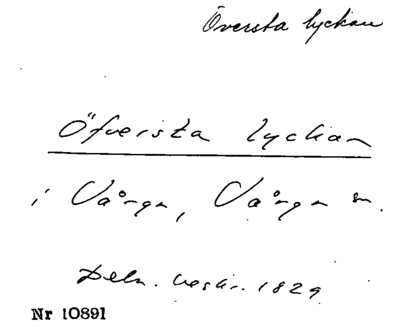 Översta lyckan
Öfversta lyckan
i Vånga, Vånga sn.
Deln. beskr. 1829
Nr 10891